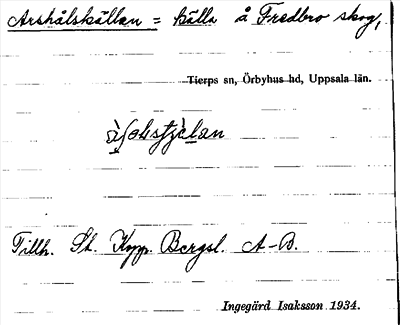 Arshålskällan = källa å Fredbro skog,
Tierps sn, Örbyhus hd, Uppsala län.
Tillh. St. Kopp. Bergsl. A-B.
Ingegärd Isaksson 1934.